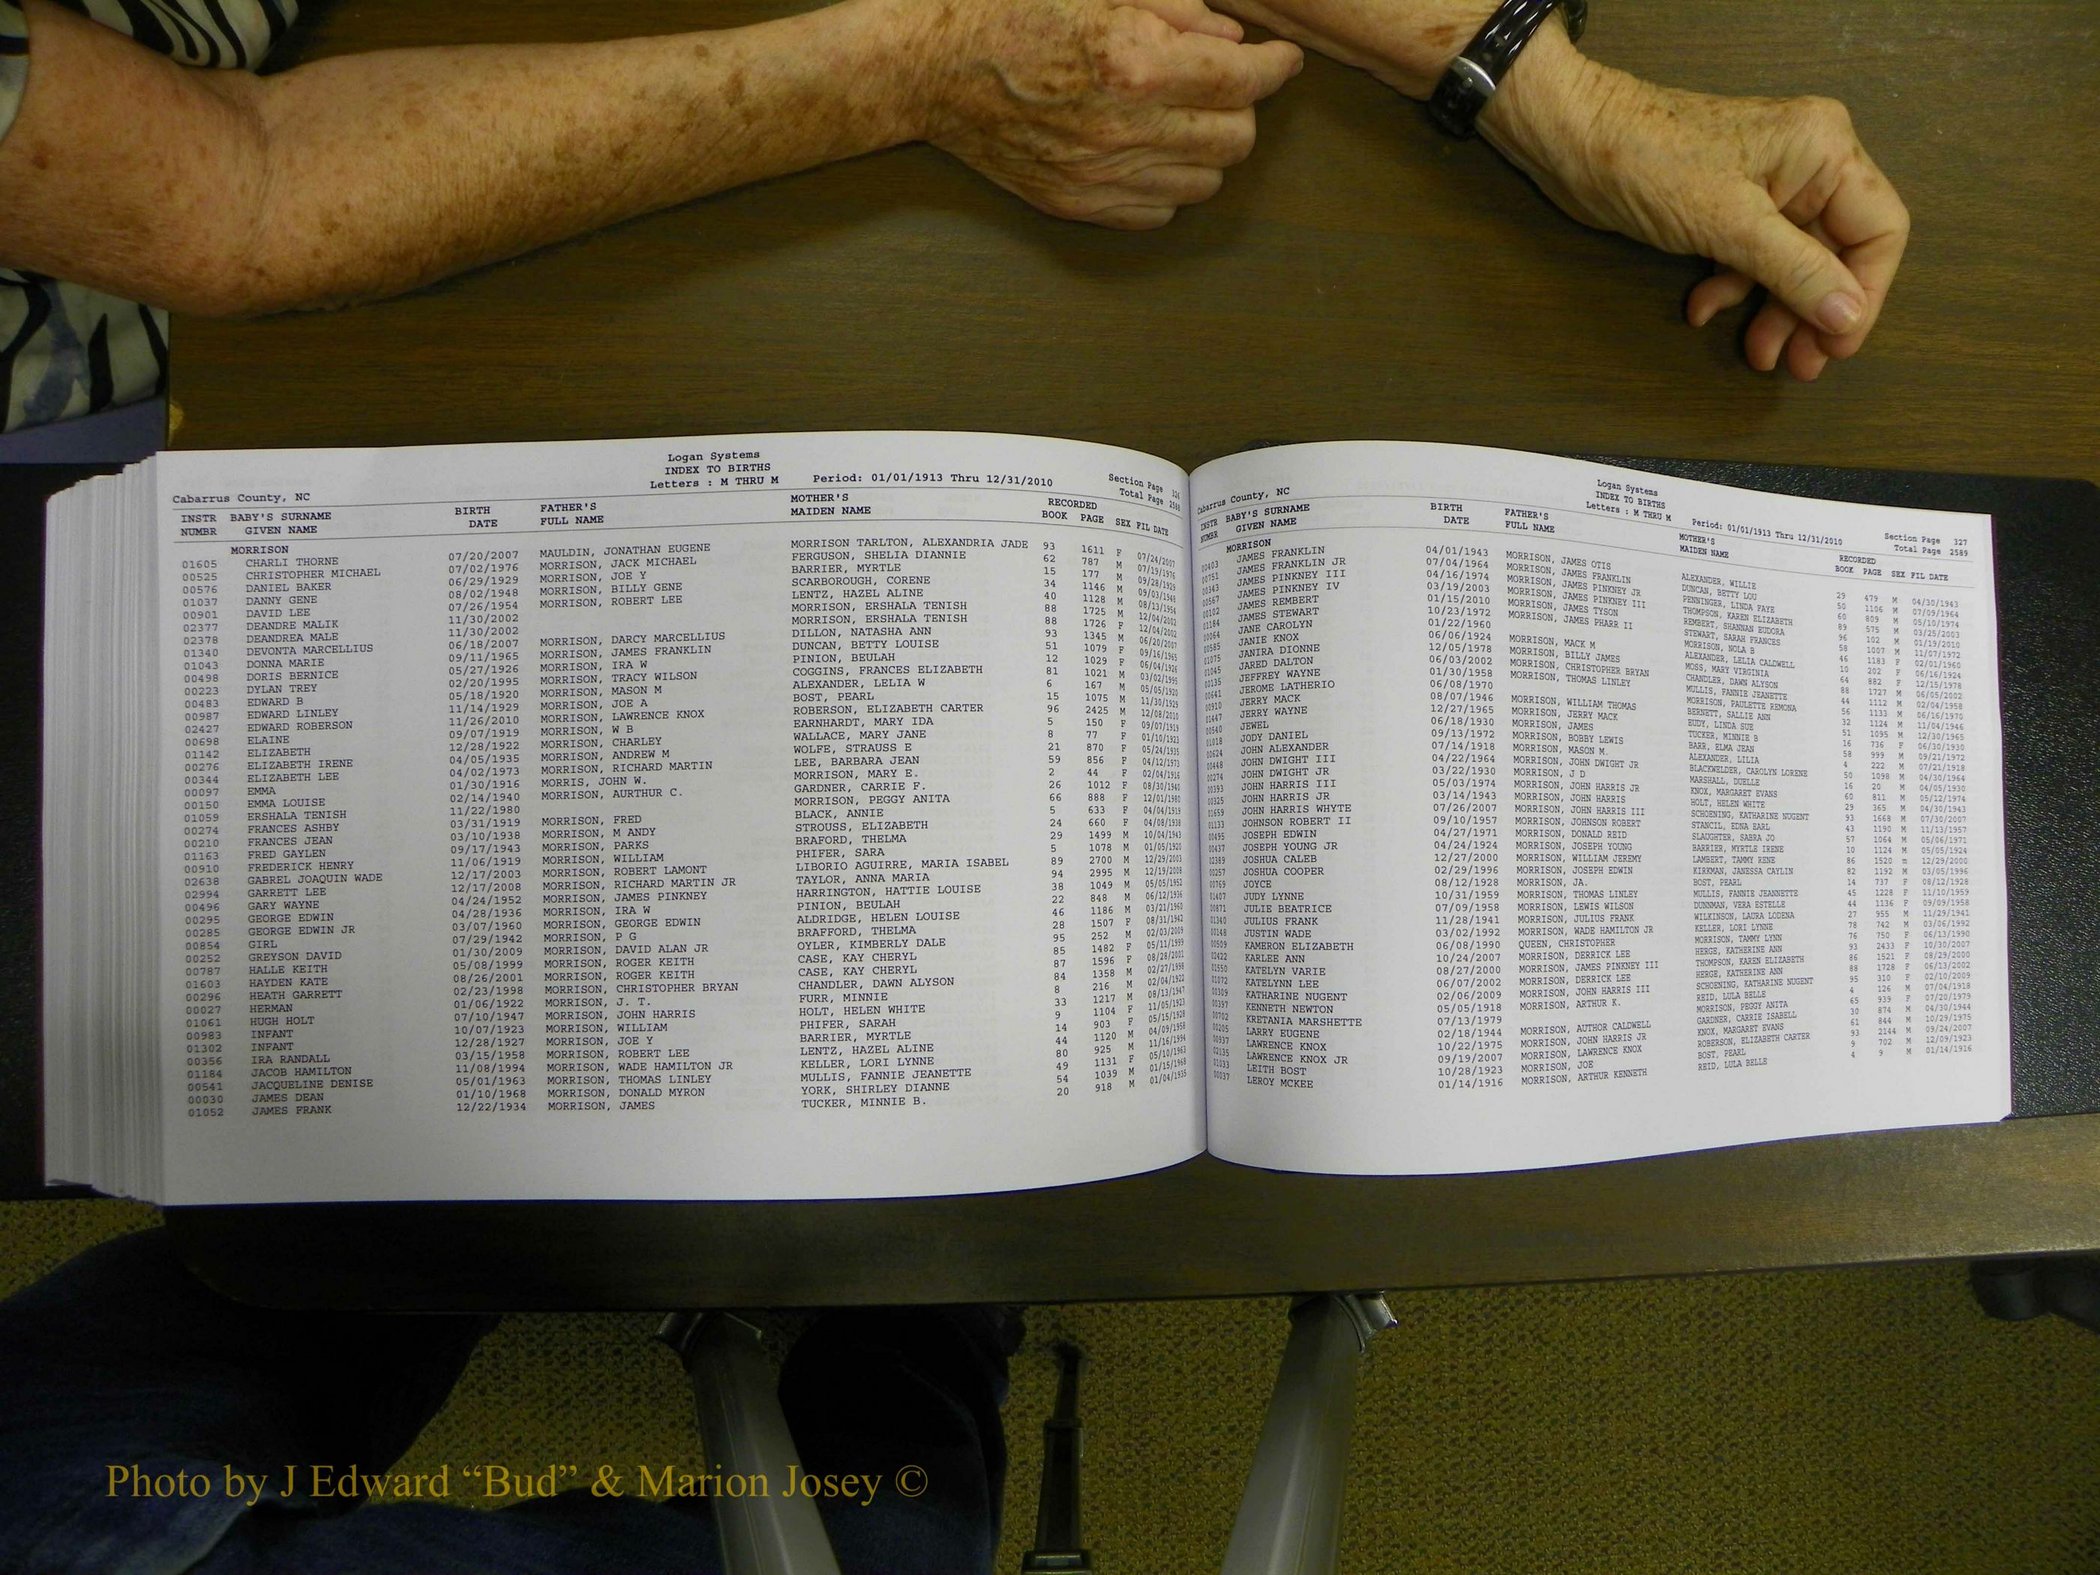 Logan Systems
INDEX TO BIRTHS
Letters : M THRU M Period: 01/01/1913 Thru 12/31/2010
Cabarrus County, NC Section Page 326
Total Page 2588
INSTR BABY'S SURNAME BIRTH FATHER'S MOTHER'S RECORDED
NUMBR GIVEN NAME DATE FULL NAME MAIDEN NAME BOOK PAGE SEX FIL DATE
MORRISON
01605 CHARLI THORNE 07/20/2007 MAULDIN, JONATHAN EUGENE MORRISON TARLTON, ALEXANDRIA JADE 93 1611 F 07/24/2007
00525 CHRISTOPHER MICHAEL 07/02/1976 MORRISON, JACK MICHAEL FERGUSON, SHELIA DIANNIE 62 787 M 07/19/1976
00576 DANIEL BAKER 06/29/1929 MORRISON, JOE Y BARRIER, MYRTLE 15 177 M 09/28/1929
01037 DANNY GENE 08/02/1948 MORRISON, BILLY GENE SCARBOROUGH, CORENE 34 1146 M 09/03/1948
00901 DAVID LEE 07/26/1954 MORRISON, ROBERT LEE LENTZ, HAZEL ALINE 40 1128 M 08/13/1954
02377 DEANDRE MALIK 11/30/2002 MORRISON, ERSHALA TENISH 88 1725 M 12/04/2002
02378 DEANDREA MALE 11/30/2002 MORRISON, ERSHALA TENISH 88 1726 F 12/04/2002
01340 DEVONTA MARCELLIUS 06/18/2007 MORRISON, DARCY MARCELLIUS DILLON, NATASHA ANN 93 1345 M 06/20/2007
01043 DONNA MARIE 09/11/1965 MORRISON, JAMES FRANKLIN DUNCAN, BETTY LOUISE 51 1079 F 09/16/1965
00498 DORIS BERNICE 05/27/1926 MORRISON, IRA W PINION, BEULAH 12 1029 F 06/04/1926
00223 DYLAN TREY 02/20/1995 MORRISON, TRACY WILSON COGGINS, FRANCES ELIZABETH 81 1021 M 03/02/1995
00483 EDWARD B 05/18/1920 MORRISON, MASON M ALEXANDER, LELIA W 6 167 M 05/05/1920
00987 EDWARD LINLEY 11/14/1929 MORRISON, JOE A BOST, PEARL 15 1075 M 11/30/1929
02427 EDWARD ROBERSON 11/26/2010 MORRISON, LAWRENCE KNOX ROBERSON, ELIZABETH CARTER 96 2425 M 12/08/2010
00698 ELAINE 09/07/1919 MORRISON, W B EARNHARDT, MARY IDA 5 150 F 09/07/1919
01142 ELIZABETH 12/28/1922 MORRISON, CHARLEY WALLACE, MARY JANE 8 77 F 01/10/1923
00276 ELIZABETH IRENE 04/05/1935 MORRISON, ANDREW M WOLFE, STRAUSS E 21 870 F 05/24/1935
00344 ELIZABETH LEE 04/02/1973 MORRISON, RICHARD MARTIN LEE, BARBARA JEAN 59 856 F 04/12/1973
00097 EMMA 01/30/1916 MORRIS, JOHN W. MORRISON, MARY E. 2 44 F 02/04/1916
00150 EMMA LOUISE 02/14/1940 MORRISON, AURTHUR C. GARDNER, CARRIE F. 26 1012 F 08/30/1940
01059 ERSHALA TENISH 11/22/1980 MORRISON, PEGGY ANITA 66 888 F 12/01/1980
00274 FRANCES ASHBY 03/31/1919 MORRISON, FRED BLACK, ANNIE 5 633 F 04/04/1919
00210 FRANCES JEAN 03/10/1938 MORRISON, M ANDY STROUSS, ELIZABETH 24 660 F 04/08/1938
01163 FRED GAYLEN 09/17/1943 MORRISON, PARKS BRAFORD, THELMA 29 1499 M 10/04/1943
00910 FREDERICK HENRY 11/06/1919 MORRISON, WILLIAM PHIFER, SARA 5 1078 M 01/05/1920
02638 GABREL JOAQUIN WADE 12/17/2003 MORRISON, ROBERT LAMONT LIBORIO AGUIRRE, MARIA ISABEL 89 2700 M 12/29/2003
02994 GARRETT LEE 12/17/2008 MORRISON, RICHARD MARTIN JR TAYLOR, ANNA MARIA 94 2995 M 12/19/2008
00496 GARY WAYNE 04/24/1952 MORRISON, JAMES PINKNEY HARRINGTON, HATTIE LOUISE 38 1049 M 05/05/1952
00295 GEORGE EDWIN 04/28/1936 MORRISON, IRA W PINION, BEULAH 22 848 M 06/12/1936
00285 GEORGE EDWIN JR 03/07/1960 MORRISON, GEORGE EDWIN ALDRIDGE, HELEN LOUISE 46 1186 M 03/21/1960
00854 GIRL 07/29/1942 MORRISON, P G BRAFFORD, THELMA 28 1507 F 08/31/1942
00252 GREYSON DAVID 01/30/2009 MORRISON, DAVID ALAN JR OYLER, KIMBERLY DALE 95 252 M 02/03/2009
00787 HALLE KEITH 05/08/1999 MORRISON, ROGER KEITH CASE, KAY CHERYL 85 1482 F 05/11/1999
01603 HAYDEN KATE 08/26/2001 MORRISON, ROGER KEITH CASE, KAY CHERYL 87 1596 F 08/28/2001
00296 HEATH GARRETT 02/23/1998 MORRISON, CHRISTOPHER BRYAN CHANDLER, DAWN ALYSON 84 1358 M 02/27/1998
00027 HERMAN 01/06/1922 MORRISON, J. T. FURR, MINNIE 8 216 M 02/04/1922
01061 HUGH HOLT 07/10/1947 MORRISON, JOHN HARRIS HOLT, HELEN WHITE 33 1217 M 08/13/1947
00983 INFANT 10/07/1923 MORRISON, WILLIAM PHIFER, SARAH 9 1104 F 11/05/1923
01302 INFANT 12/28/1927 MORRISON, JOE Y BARRIER, MYRTLE 14 903 F 05/15/1928
00356 IRA RANDALL 03/15/1958 MORRISON, ROBERT LEE LENTZ, HAZEL ALINE 44 1120 M 04/09/1958
01184 JACOB HAMILTON 11/08/1994 MORRISON, WADE HAMILTON JR KELLER, LORI LYNNE 80 925 M 11/16/1994
00541 JACQUELINE DENISE 05/01/1963 MORRISON, THOMAS LINLEY MULLIS, FANNIE JEANETTE 49 1131 F 05/10/1963
00030 JAMES DEAN 01/10/1968 MORRISON, DONALD MYRON YORK, SHIRLEY DIANNE 54 1039 M 01/15/1968
01052 JAMES FRANK 12/22/1934 MORRISON, JAMES TUCKER, MINNIE B. 20 918 M 01/04/1935
Logan Systems
INDEX TO BIRTHS
Letters : M THRU M Period: 01/01/1913 Thru 12/31/2010
Cabarrus County, NC Section Page 327
Total Page 2589
INSTR BABY'S SURNAME BIRTH FATHER'S MOTHER'S RECORDED
NUMBR GIVEN NAME DATE FULL NAME MAIDEN NAME BOOK PAGE SEX FIL DATE
MORRISON
00403 JAMES FRANKLIN 04/01/1943 MORRISON, JAMES OTIS ALEXANDER, WILLIE 29 479 M 04/30/1943
00751 JAMES FRANKLIN JR 07/04/1964 MORRISON, JAMES FRANKLIN DUNCAN, BETTY LOU 50 1106 M 07/09/1964
00343 JAMES PINKNEY III 04/16/1974 MORRISON, JAMES PINKNEY JR PENNINGER, LINDA FAYE 60 809 M 05/10/1974
00567 JAMES PINKNEY IV 03/19/2003 MORRISON, JAMES PINKNEY III THOMPSON, KAREN ELIZABETH 89 575 M 03/25/2003
00102 JAMES REMBERT 01/15/2010 MORRISON, JAMES TYSON REMBERT, SHANNAN EUDORA 96 102 M 01/19/2010
01184 JAMES STEWART 10/23/1972 MORRISON, JAMES PHARR II STEWART, SARAH FRANCES 58 1007 M 11/07/1972
00064 JANE CAROLYN 01/22/1960 MORRISON, NOLA B 46 1183 F 02/01/1960
00585 JANIE KNOX 06/06/1924 MORRISON, MACK M ALEXANDER, LELIA CALDWELL 10 202 F 06/16/1924
01075 JANIRA DIONNE 12/05/1978 MORRISON, BILLY JAMES MOSS, MARY VIRGINIA 64 882 F 12/15/1978
01045 JARED DALTON 06/03/2002 MORRISON, CHRISTOPHER BRYAN CHANDLER, DAWN ALYSON 88 1727 M 06/05/2002
00135 JEFFREY WAYNE 01/30/1958 MORRISON, THOMAS LINLEY MULLIS, FANNIE JEANETTE 44 1112 M 02/04/1958
00641 JEROME LATHERIO 06/08/1970 MORRISON, PAULETTE REMONA 56 1133 M 06/16/1970
00910 JERRY MACK 08/07/1946 MORRISON, WILLIAM THOMAS BERNETT, SALLIE ANN 32 1124 M 11/04/1946
01447 JERRY WAYNE 12/27/1965 MORRISON, JERRY MACK EUDY, LINDA SUE 51 1095 M 12/30/1965
00540 JEWEL 06/18/1930 MORRISON, JAMES TUCKER, MINNIE B 16 736 F 06/30/1930
01018 JODY DANIEL 09/13/1972 MORRISON, BOBBY LEWIS BARR, ELMA JEAN 58 999 M 09/21/1972
00624 JOHN ALEXANDER 07/14/1918 MORRISON, MASON M. ALEXANDER, LILIA 4 222 M 07/21/1918
00448 JOHN DWIGHT III 04/22/1964 MORRISON, JOHN DWIGHT JR BLACKWELDER, CAROLYN LORENE 50 1098 M 04/30/1964
00274 JOHN DWIGHT JR 03/22/1930 MORRISON, J D MARSHALL, DUELLE 16 20 M 04/05/1930
00393 JOHN HARRIS III 05/03/1974 MORRISON, JOHN HARRIS JR KNOX, MARGARET EVANS 60 811 M 05/12/1974
00325 JOHN HARRIS JR 03/14/1943 MORRISON, JOHN HARRIS HOLT, HELEN WHITE 29 365 M 04/30/1943
01659 JOHN HARRIS WHYTE 07/26/2007 MORRISON, JOHN HARRIS III SCHOENING, KATHARINE NUGENT 93 1668 M 07/30/2007
01133 JOHNSON ROBERT II 09/10/1957 MORRISON, JOHNSON ROBERT STANCIL, EDNA EARL 43 1190 M 11/13/1957
00495 JOSEPH EDWIN 04/27/1971 MORRISON, DONALD REID SLAUGHTER, SABRA JO 57 1064 M 05/06/1971
00437 JOSEPH YOUNG JR 04/24/1924 MORRISON, JOSEPH YOUNG BARRIER, MYRTLE IRENE 10 1124 M 05/05/1924
02389 JOSHUA CALEB 12/27/2000 MORRISON, WILLIAM JEREMY LAMBERT, TAMMY RENE 86 1520 m 12/29/2000
00257 JOSHUA COOPER 02/29/1996 MORRISON, JOSEPH EDWIN KIRKMAN, JANESSA CAYLIN 82 1192 M 03/05/1996
00769 JOYCE 08/12/1928 MORRISON, JA. BOST, PEARL 14 737 F 08/12/1928
01407 JUDY LYNNE 10/31/1959 MORRISON, THOMAS LINLEY MULLIS, FANNIE JEANNETTE 45 1228 F 11/10/1959
00871 JULIE BEATRICE 07/09/1958 MORRISON, LEWIS WILSON DUNNMAN, VERA ESTELLE 44 1136 F 09/09/1958
01340 JULIUS FRANK 11/28/1941 MORRISON, JULIUS FRANK WILKINSON, LAURA LODENA 27 955 M 11/29/1941
00148 JUSTIN WADE 03/02/1992 MORRISON, WADE HAMILTON JR KELLER, LORI LYNNE 78 742 M 03/06/1992
00509 KAMERON ELIZABETH 06/08/1990 QUEEN, CHRISTOPHER MORRISON, TAMMY LYNN 76 750 F 06/13/1990
02422 KARLEE ANN 10/24/2007 MORRISON, DERRICK LEE HERGE, KATHERINE ANN 93 2433 F 10/30/2007
01550 KATELYN VARIE 08/27/2000 MORRISON, JAMES PINKNEY III THOMPSON, KAREN ELIZABETH 86 1521 F 08/29/2000
01072 KATELYNN LEE 06/07/2002 MORRISON, DERRICK LEE HERGE, KATHERINE ANN 88 1728 F 06/13/2002
00309 KATHARINE NUGENT 02/06/2009 MORRISON, JOHN HARRIS III SCHOENING, KATHARINE NUGENT 95 310 F 02/10/2009
00397 KENNETH NEWTON 05/05/1918 MORRISON, ARTHUR K. REID, LULA BELLE 4 126 M 07/04/1918
00702 KRETANIA MARSHETTE 07/13/1979 MORRISON, PEGGY ANITA 65 939 F 07/20/1979
00205 LARRY EUGENE 02/18/1944 MORRISON, AUTHOR CALDWELL GARDNER, CARRIE ISABELL 30 874 M 04/30/1944
00937 LAWRENCE KNOX 10/22/1975 MORRISON, JOHN HARRIS JR KNOX, MARGARET EVANS 61 844 M 10/29/1975
02135 LAWRENCE KNOX JR 09/19/2007 MORRISON, LAWRENCE KNOX ROBERSON, ELIZABETH CARTER 93 2144 M 09/24/2007
01033 LEITH BOST 10/28/1923 MORRISON, JOE BOST, PEARL 9 702 M 12/09/1923
00037 LEROY MCKEE 01/14/1916 MORRISON, ARTHUR KENNETH REID, LULA BELLE 4 9 M 01/14/1916
Photo by J Edward “Bud” & Marion Josey ©